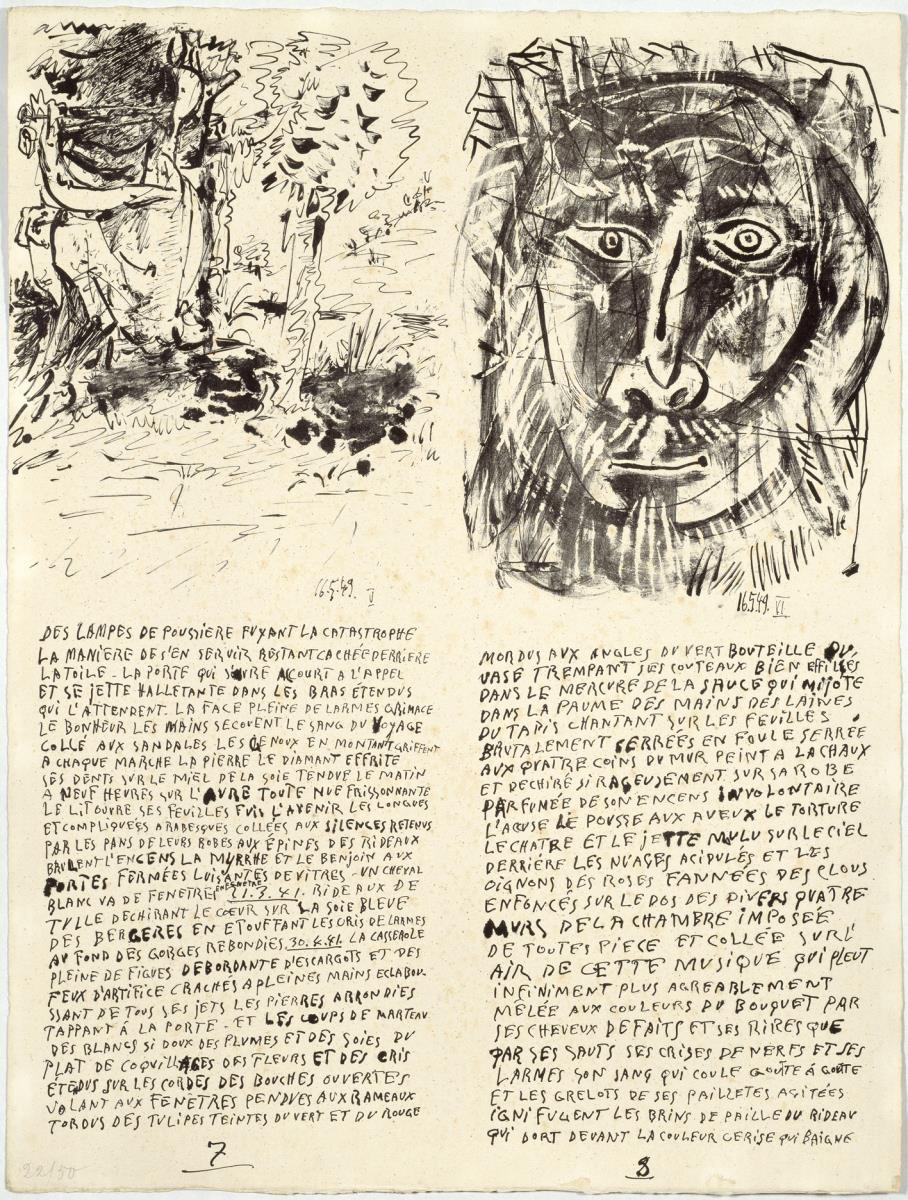 16.5.49. V
DES LAMPES DE POUSSIÈRE FUYANT LA CATASTROPHE
LA MANIÈRE DE S'EN SERVIR RESTANT CACHÉE DERRIÈRE
LA TOILE - LA PORTE QUI S'OUVRE ACCOURT A L'APPEL
ET SE JETTE HALLETANTE DANS LES BRAS ÉTENDUS
QUI L'ATTENDENT. LA FACE PLEINE DE LARMES GRIMACE
LE BONHEUR LES MAINS SECOUENT LE SANG DU VOYAGE
COLLÉ AUX SANDALES LES GENOUX EN MONTANT GRIFFENT
A CHAQUE MARCHE LA PIERRE LE DIAMANT EFFRITE
SES DENTS SUR LE MIEL DE LA SOIE TENDUE LE MATIN
A NEUF HEURES SUR L'AURE TOUTE NUE FRISSONNANTE
LE LIT OUVRE SES FEUILLES FUIS L'AVENIR LES LONGUES
ET COMPLIQUÉES ARABESQUES COLLÉES AUX SILENCES RETENUS
PAR LES PANS DE LEURS ROBES AUX ÉPINES DES RIDEAUX
BRULENT L'ENCENS LA MYRRHE ET LE BENJOIN AUX
PORTES FERMÉES LUISANTES DE VITRES - UN CHEVAL
BLANC VA DE FENETRE EN FENETRE 21.3.41. RIDEAUX DE
TULLE DECHIRANT LE CŒUR SUR LA SOIE BLEUE
DES BERGERES EN ETOUFFANT LES CRIS DE LARMES
AU FOND DES GORGES REBONDIES. 30.4.41. LA CASSEROLE
PLEINE DE FIGUES DEBORDANTE D'ESCARGOTS ET DES
FEUX D'ARTIFICE CRACHÉS A PLEINES MAINS ECLABOU-
SSANT DE TOUS SES JETS LES PIERRES ARRONDIES
TAPPANT À LA PORTE - ET LES COUPS DE MARTEAU
DES BLANCS SI DOUX DES PLUMES ET DES SOIES DU
PLAT DE COQUILLAGES DES FLEURS ET DES CRIS
ÉTENDUS SUR LES CORDES DES BOUCHES OUVERTES
VOLANT AUX FENETRES PENDUES AUX RAMEAUX
TORDUS DES TULIPES TEINTES DU VERT ET DU ROUGE
7
22/50
16.5.49. VI
MORDUS AUX ANGLES DU VERT BOUTEILLE DU
VASE TREMPANT SES COUTEAUX BIEN EFFILÉS
DANS LE MERCURE DE LA SAUCE QUI MIJOTE
DANS LA PAUME DES MAINS DES LAINES
DU TAPIS CHANTANT SUR LES FEUILLES
BRUTALEMENT SERRÉES EN FOULE SERRÉE
AUX QUATRE COINS DU MUR PEINT A LA CHAUX
ET DECHIRÉ SI RAGEUSEMENT SUR SA ROBE
PARFUMÉE DE SON ENCENS INVOLONTAIRE
L'ACUSE LE POUSSE AUX AVEUX LE TORTURE
LE CHATRE ET LE JETTE MULU SUR LE CIEL
DERRIÉRE LES NUAGES ACIDULÉS ET LES
OIGNONS DES ROSES FANNÉES DES CLOUS
ENFONCÉS SUR LE DOS DES DIVERS QUATRE
MURS DE LA CHAMBRE IMPOSÉE
DE TOUTES PIECE ET COLLÉE SUR L'
AIR DE CETTE MUSIQUE QUI PLEUT
INFINIMENT PLUS AGREABLEMENT
MÊLÉE AUX COULEURS DU BOUQUET PAR
SES CHEVEUX DEFAITS ET SES RIRES QUE
PAR SES SAUTS SES CRISES DE NERFS ET SES
LARMES SON SANG QUI COULE GOUTE À GOUTE
ET LES GRELOTS DE SES PAILLETES AGITÉES
IGNIFUGENT LES BRINS DE PAILLE DU RIDEAU
QUI DORT DEVANT LA COULEUR CERISE QUI BAIGNE
8